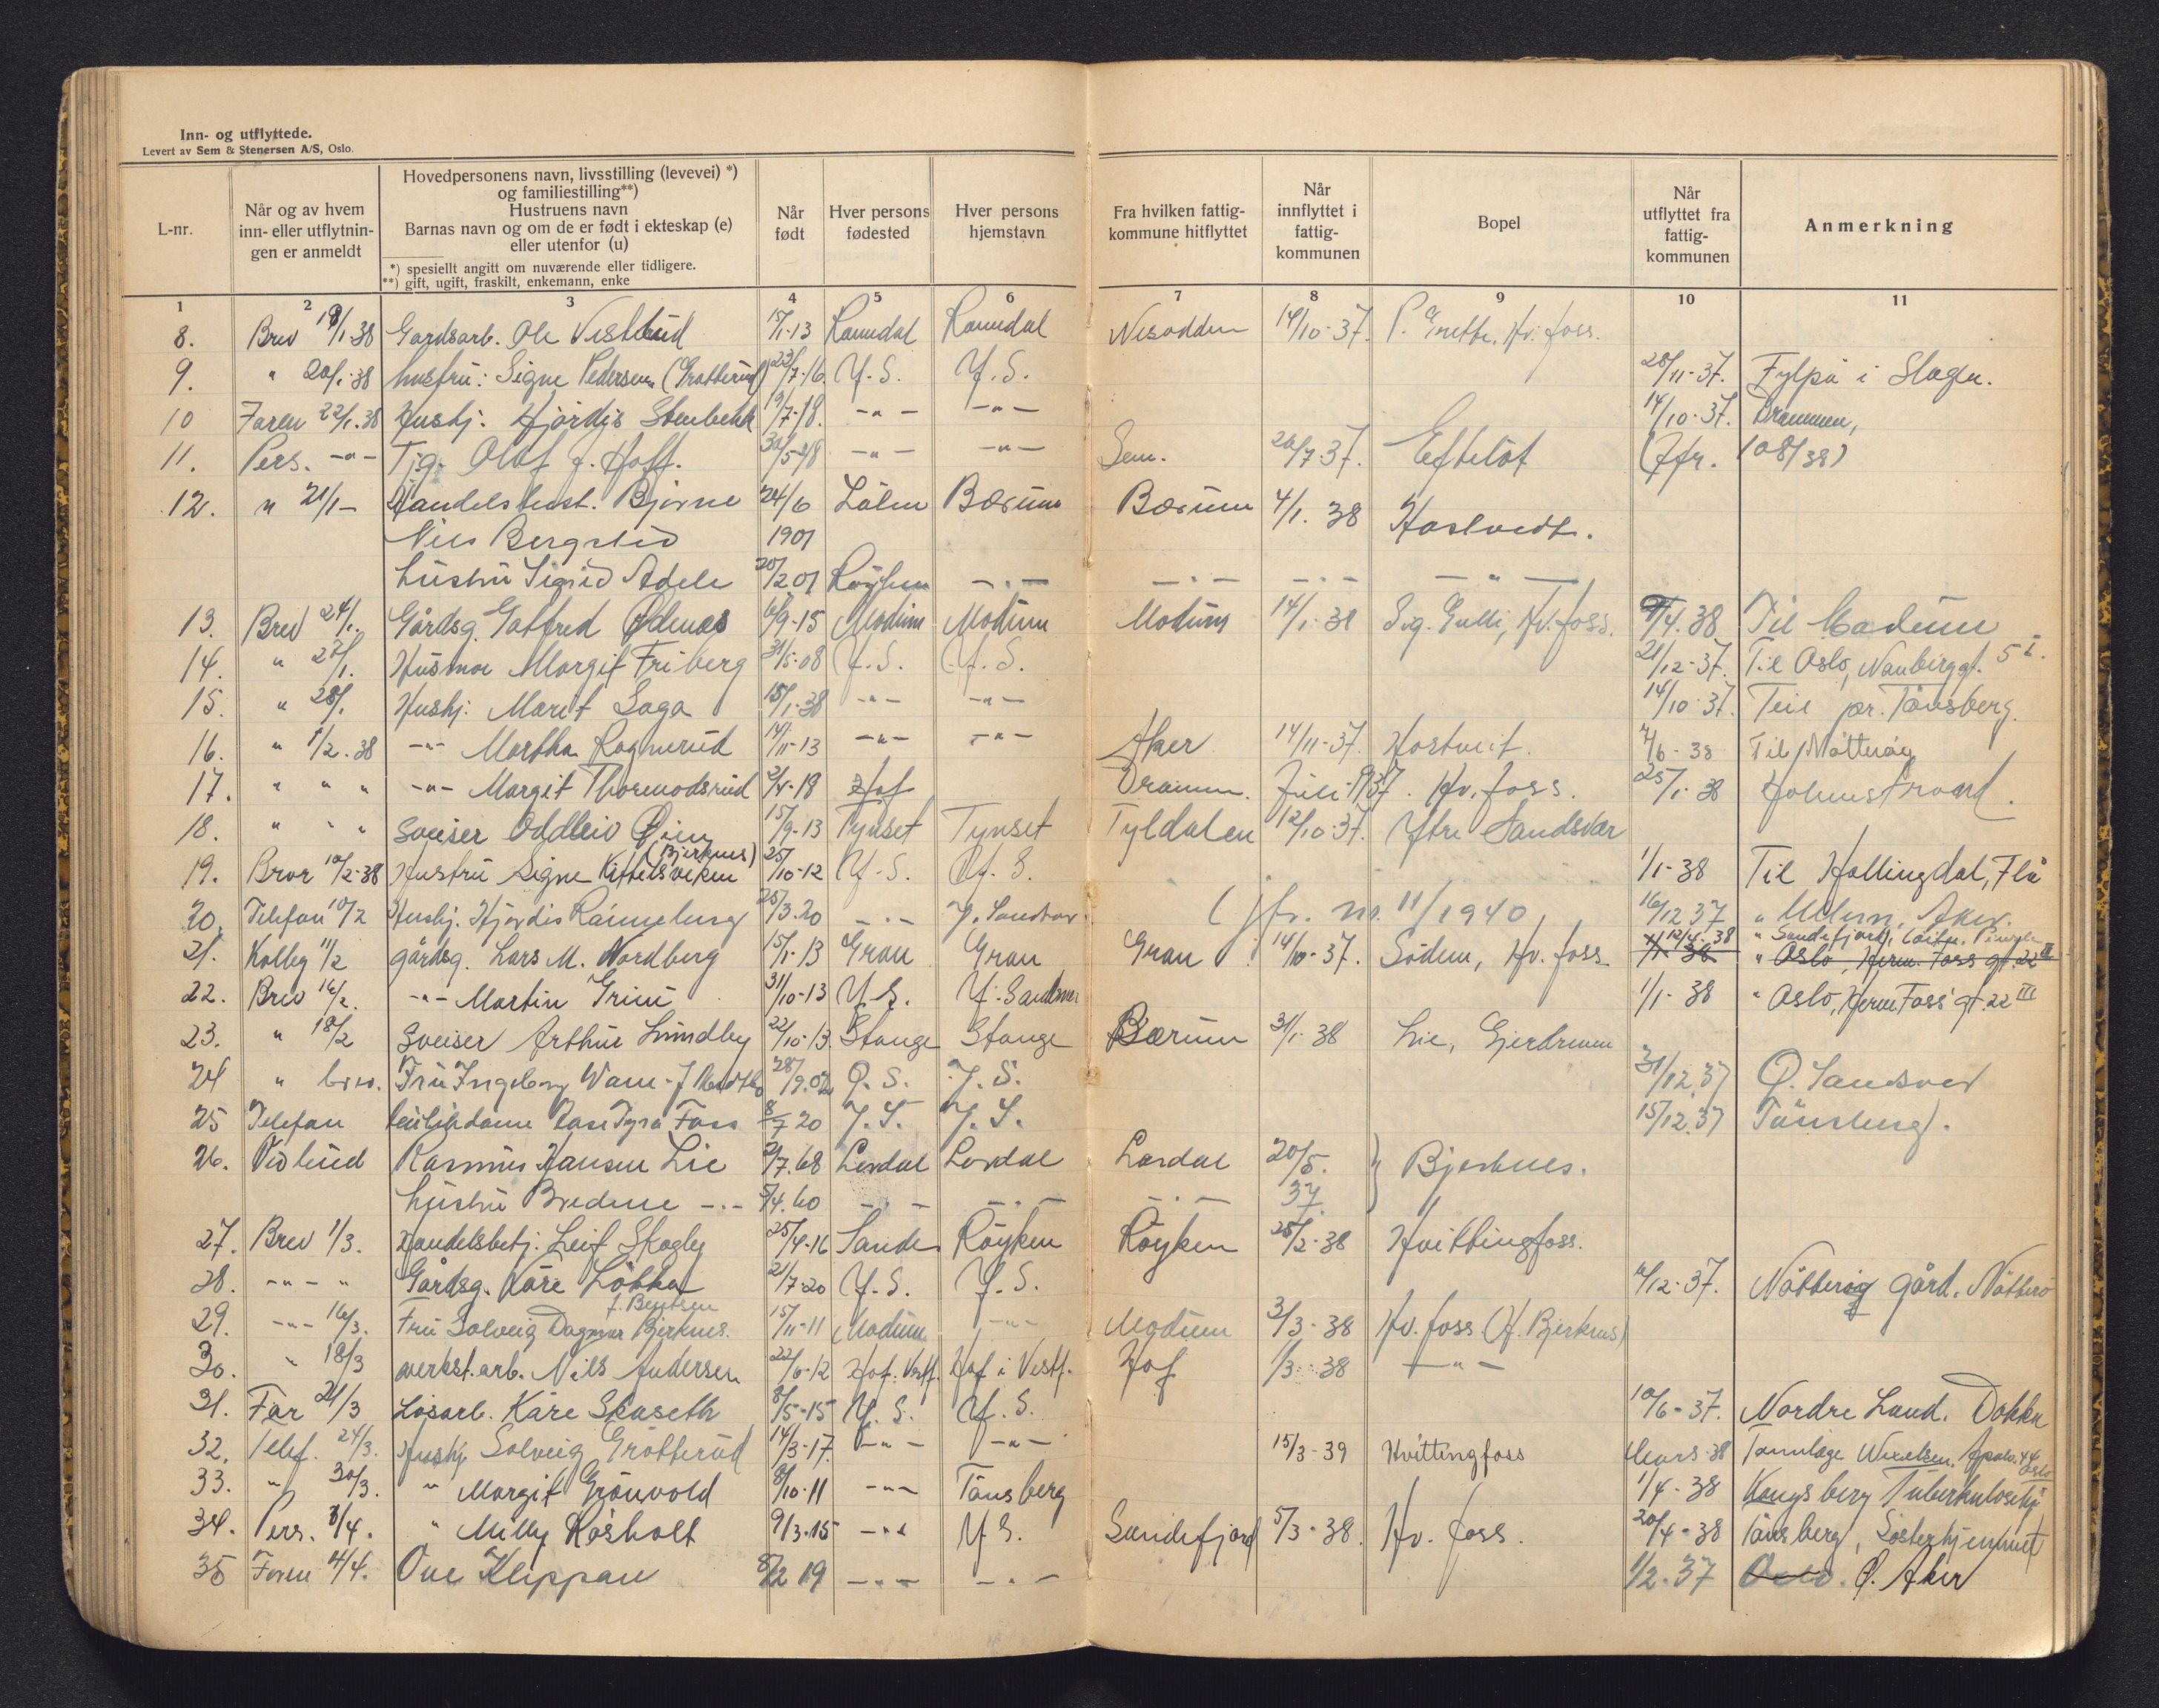 Inn- og utflyttede.
Levert av Sem & Stenersen A/S, Oslo.
L-nr.
Når og av hvem inn- eller utflytnin- gen er anmeldt
Hovedpersonens navn, livsstilling (levevei) *)
og familiestilling**)
Hustruens navn
Barnas navn og om de er født i ekteskap (e)
eller utenfor (u)
*) spesiellt angitt om nuværende eller tidligere.
**) gift, ugift, fraskilt, enkemann, enke
Når født
Hver persons fødested
Hver persons hjemstavn
Fra hvilken fattig- kommune hitflyttet
Når innflyttet i fattig- kommunen
Bopel
Når utflyttet fra fattig- kommunen
Anmerkning
1 2 3 4 5 6 7 8 9 10 11
8. Brev 19/1-38 Gardsarb. Ole 15/1-13 Ramdal Ramdal Nesodden 14/10-37. Hv. foss.
9. " 20/1-38 hustru: Signe Pedersen (Grotterud) 23/7-16 Y.S. Y.S. 28/11-37. i Slagen.
10 Faren 22/1.38 Hushj. Hjördis Stenbekk 19/7-18. -"- -"- 14/10-37. Drammen,
11. Pers. -"- Tjg. Olof J. Hoff. 30/5-18 -"- -"- Sem. 26/7 37. Eftelöt (Jfr. 108/38)
12. " 21/1- Handelsbest. Bjarne 24/6 Bærum Bærum 4/1. 38 Hostvedt.
Nils Bergslid 1901
hustru Sigrid Adele 20/2 01 Röyken -"- -"- -"- -"-
13. Brev 24/1. Gårdsg. Gotfred Ødenes 6/9-15 Modum Modum Modum 14/1-38 Sig. Gulli, Hv. foss. /4.38 Til Modum
14. " 27/1. Husmor Margit Friberg 31/5-08 Y.S. Y.S. 21/12-37. Til Oslo,
15. " 28/1. Hushj. Marit Saga 15/1-38 -"- -"- 14/10-37. Teie pr. Tönsberg.
16. " 1/2.38 -"- Martha Rognerud 14/11-13 -"- -"- Aker 14/11-37. Hostveit. /6-38 Til Nötteröy
17. " " " -"- Margit Thormodsrud 2/4-18 Hof Dramm. Juli 1937. Hv. foss. 25/1-38 Holmestrand.
18. " " " Sveiser Oddleiv Øien 15/9-13 Tynset Tynset Tyldalen 12/10-37. Ytre Sandsvær
19. Bror 10/2-38 Hustru Signe Kittelsviken (Bjerknes) 25/10-12 Y.S. Y.S. 1/1-38 Til Hallingdal, Flå
20. Telefon 10/2 Hushj. Hjördis Ramberg 25/3.20 -"- Y. Sandsvær (jfr. nr. 11/1940, 16/12 37 " Ullern, Aker.
21. Kolbg 11/2 gårdsg. Lars M. Nordberg 15/1-13 Gran Gran Gran 14/10-37. Södem, Hv. foss 12/4-38 " Sandefjord,
1/1 38 " Oslo, Herm. Foss gt. 22 III
22. Brev 16/2. -"- Martin Grim 31/10-13 Y.S. Y. Sandsvær 1/1-38 " Oslo, Herm Foss' gt. 22 III
23. " 18/2 Sveiser Arthur Lundby 22/10-13. Stange Stange Bærum 31/1-38 Lie, Gjerdrum
24 " brev. Fru Ingeborg 28/9.02 Ø.S. Y.S. 31/12.37 Ø. Sandsver
25 Telefon Foss 8/7 20 Y.S. Y.S. 15/12.37 Tönsberg.
26. Vidlund Rasmus Hansen Lie 2/7.68 Lardal Lardal Lardal 20/5. 37 } Bjerknes.
hustru Bredine -"- 5/4.60 -"- -"- -"-
27. Brev 1/3. Handelsbetj. Leif Skogly 25/4-16 Sande Röyken Röyken 28/2-38 Hvittingfoss.
28. -"- " Gårdsg. Kåre Lökka 21/7-20 Y.S. Y.S. /12-37. Nötteröy gård. Nötterö
29. -"- 16/3. Fru Solveig Dagmar Bjerknes. f. Bentsen 15/11-11 Modum -"- Modum 3/3-38 Hv. foss (H. Bjerknes)
30. " 18/3 verkst.arb. Nils Andersen 22/6-12 Hof. Vestf. Hof i Vestf. Hof 1/3-38 -"-
31. Far 21/3 Lösarb. Kåre Skaseth 8/5-15 Y.S. Y.S. 10/6-37. Nordre Land. Dokka
32. Telef. 24/3. Hushj. Solveig Grötterud 14/3-17. -"- -"- 15/3-39 Hvittingfoss Mars-38 Tannlæge
33. " 30/3. " Margit Grönvold 8/10-11 -"- Tönsberg 1/4-38 Kongsberg Tuberkulosehj.
34. Pers. 8/4. " Milly Rösholt 9/3-15 -"- Y.S. Sandefjord 5/3-38. Hv. foss. 20/4-38 Tönsberg, Sösterhjemmet
35 Faren 11/4. Ove Klippan 8/2 19 -"- -"- 1/2-37 Oslo. Ø. Aker